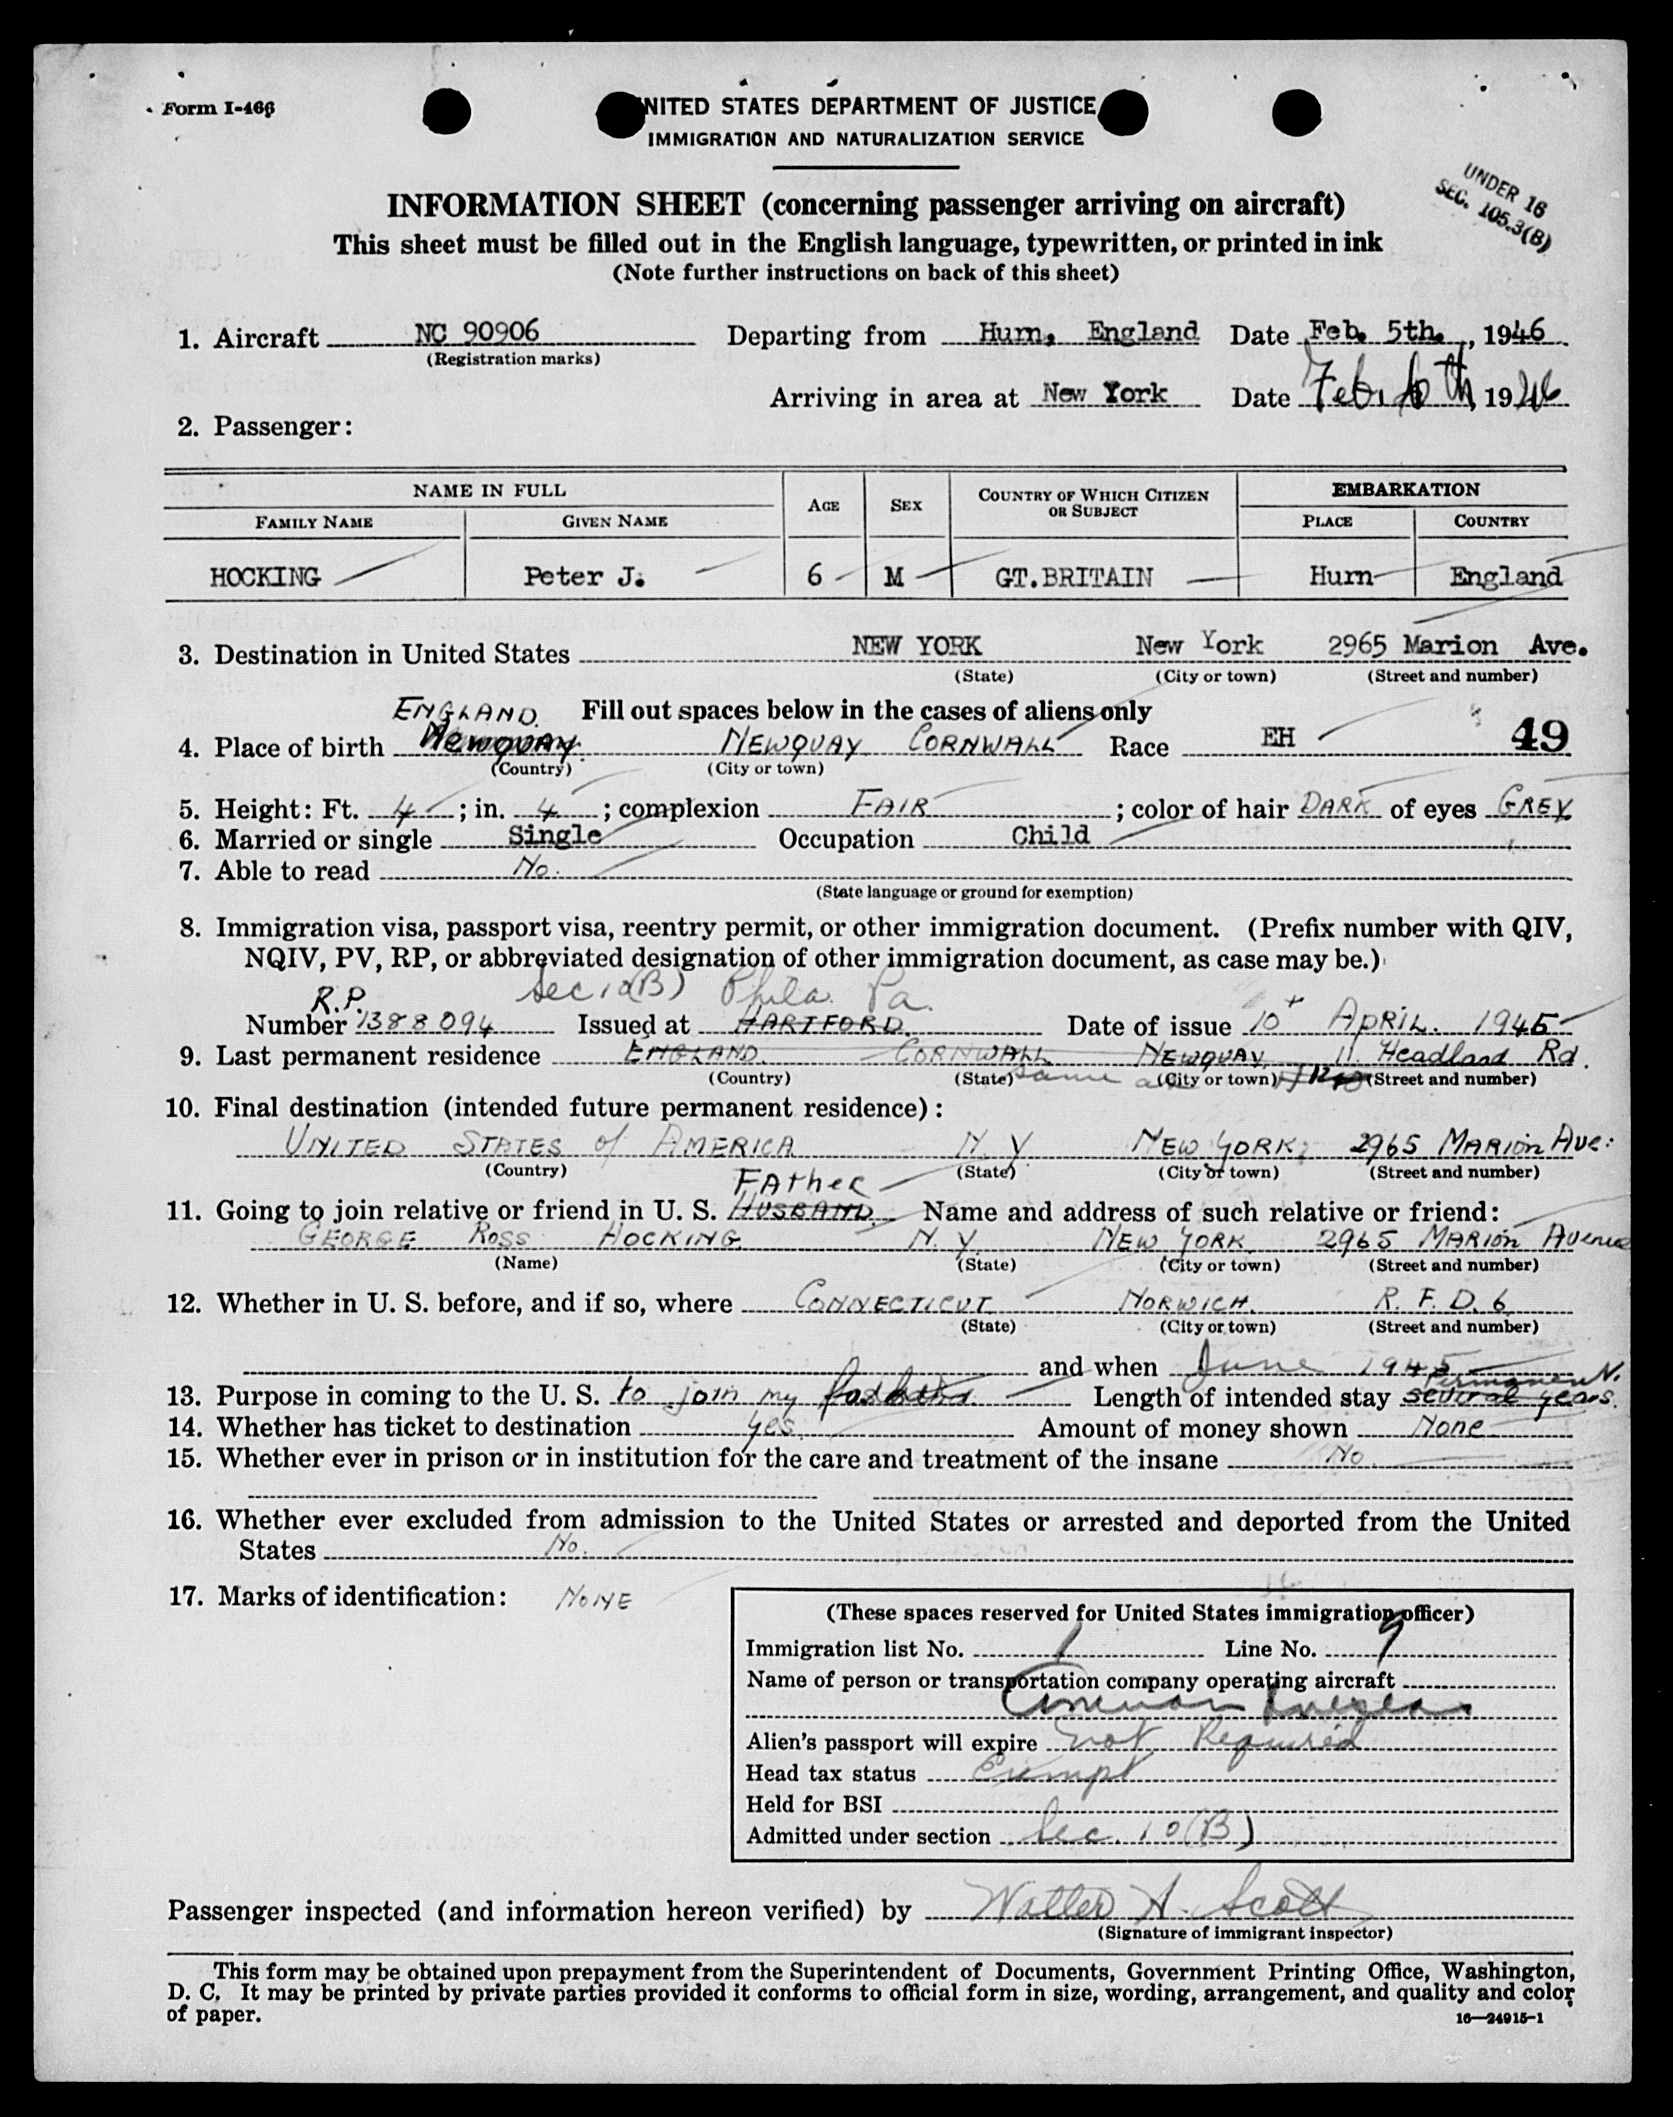 Form I-466
UNITED STATES DEPARTMENT OF JUSTICE
IMMIGRATION AND NATURALIZATION SERVICE
UNDER 16
SEC. 105.3(B)
INFORMATION SHEET (concerning passenger arriving on aircraft)
This sheet must be filled out in the English language, typewritten, or printed in ink
(Note further instructions on back of this sheet)
1. Aircraft NC 90906 Departing from Hurn, England Date Feb. 5th., 1946
(Registration marks)
Arriving in area at New York Date Feb. 6th, 1946
2. Passenger:
NAME IN FULL AGE SEX COUNTRY OF WHICH CITIZEN OR SUBJECT EMBARKATION
FAMILY NAME GIVEN NAME PLACE COUNTRY
HOCKING Peter J. 6 M GT.BRITAIN Hurn England
3. Destination in United States NEW YORK New York 2965 Marion Ave.
(State) (City or town) (Street and number)
ENGLAND. Fill out spaces below in the cases of aliens only
4. Place of birth Newquay. NEWQUAY CORNWALL Race EH 49
(Country) (City or town)
5. Height: Ft. 4; in. 4; complexion FAIR; color of hair DARK of eyes GREY
6. Married or single Single Occupation Child
7. Able to read No.
(State language or ground for exemption)
8. Immigration visa, passport visa, reentry permit, or other immigration document. (Prefix number with QIV,
NQIV, PV, RP, or abbreviated designation of other immigration document, as case may be.)
R.P. Sec 10(B) Phila. Pa.
Number 1388094 Issued at HARTFORD. Date of issue 10th APRIL. 1945
9. Last permanent residence ENGLAND. CORNWALL NEWQUAY, 11. Headland Rd.
(Country) (State) same as (City or town) #12 (Street and number)
10. Final destination (intended future permanent residence):
UNITED STATES of AMERICA N. Y. NEW YORK, 2965 MARION Ave.
(Country) (State) (City or town) (Street and number)
FATHER
11. Going to join relative or friend in U. S. HUSBAND. Name and address of such relative or friend:
GEORGE ROSS HOCKING N. Y. NEW YORK 2965 MARION Avenue
(Name) (State) (City or town) (Street and number)
12. Whether in U. S. before, and if so, where CONNECTICUT NORWICH. R. F. D. 6
(State) (City or town) (Street and number)
and when June 1945
Permanent.
13. Purpose in coming to the U. S. to join my Length of intended stay several years.
14. Whether has ticket to destination Yes. Amount of money shown None
15. Whether ever in prison or in institution for the care and treatment of the insane No.
16. Whether ever excluded from admission to the United States or arrested and deported from the United
States No.
17. Marks of identification: NONE
(These spaces reserved for United States immigration officer)
Immigration list No. 1 Line No. 9
Name of person or transportation company operating aircraft
American Overseas
Alien's passport will expire not Required
Head tax status Exempt
Held for BSI
Admitted under section Sec. 10(B)
Passenger inspected (and information hereon verified) by Walter A. Scott
(Signature of immigrant inspector)
This form may be obtained upon prepayment from the Superintendent of Documents, Government Printing Office, Washington,
D. C. It may be printed by private parties provided it conforms to official form in size, wording, arrangement, and quality and color
of paper.
16—24915-1